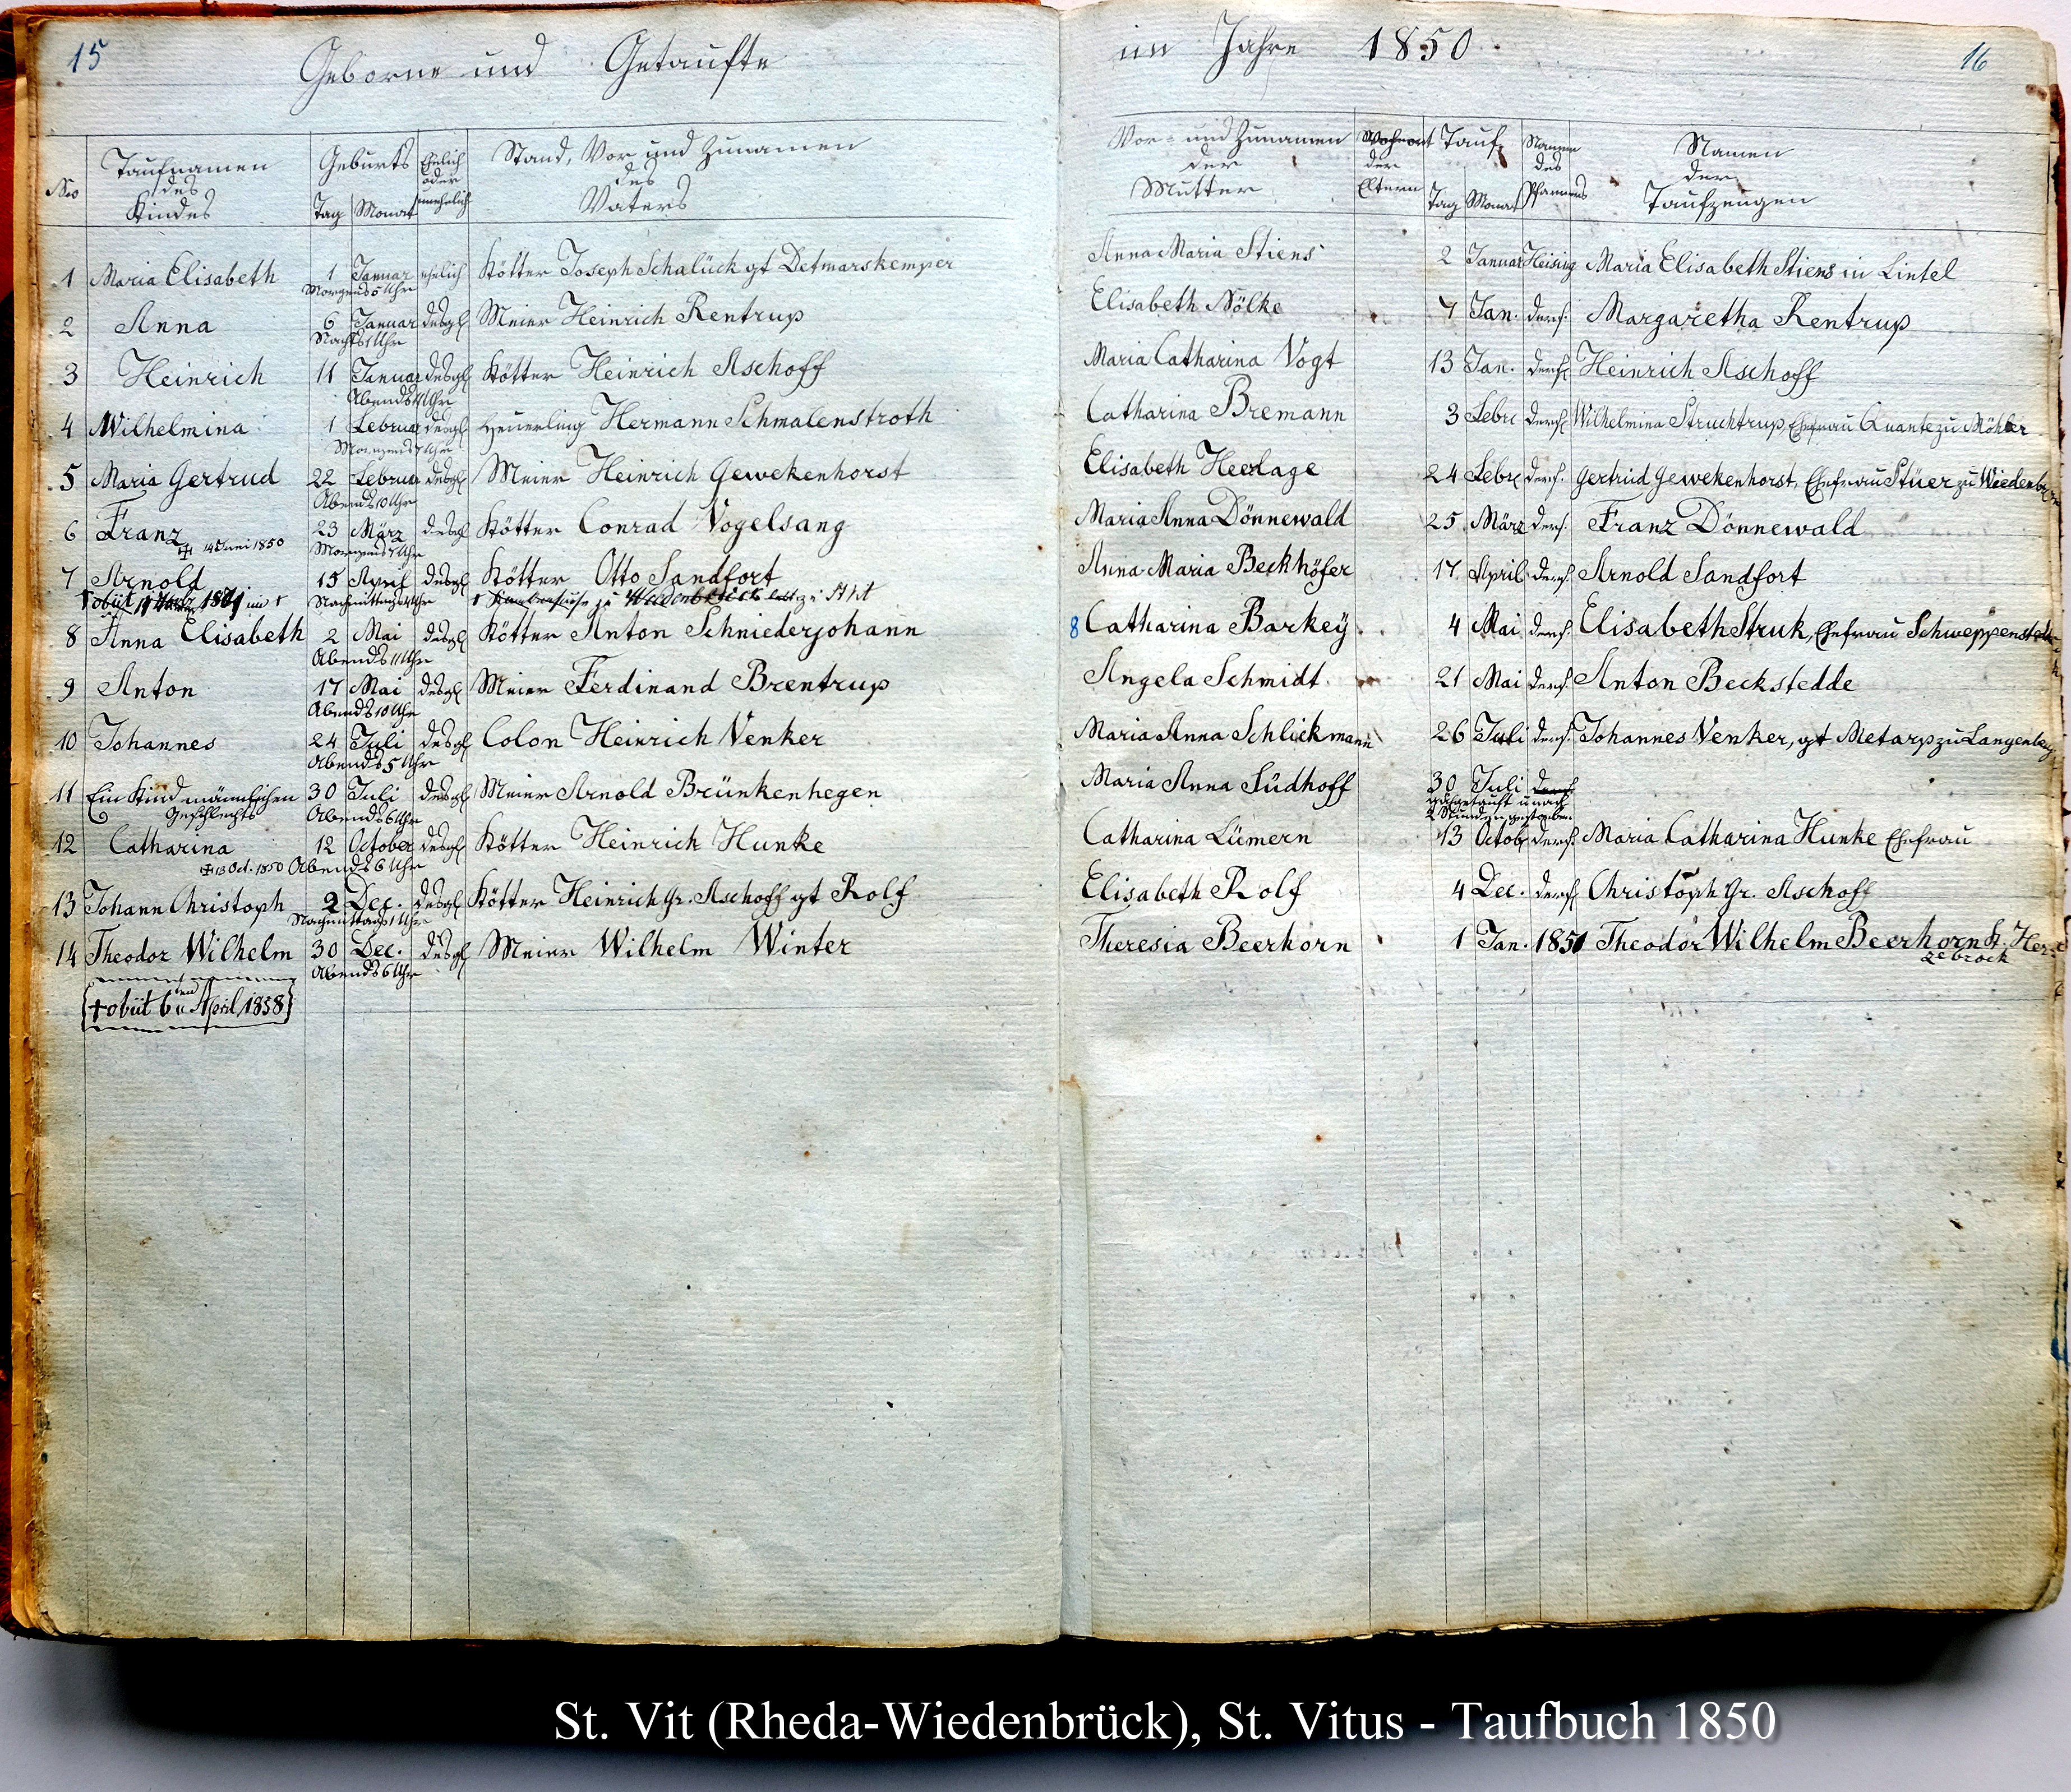 15
Geborne und Getaufte
im Jahre 1850.
16
Nro
Taufnamen des Kindes
Geburts Tag Monat
Ehelich oder unehelich
Stand, Vor und Zunamen des Vaters
Vor- und Zunamen der Mutter
Wohnort der Eltern
Tauf- Tag Monat
Namen des Pfarrers
Namen der Taufzeugen
1 Maria Elisabeth 1 Januar ehelich Kötter Joseph Schalück gt Detmarskemper Anna Maria Stiens 2 Januar Heising Maria Elisabeth Stiens in Lintel
Morgens 5 Uhr
2 Anna 6 Januar desgl Meier Heinrich Rentrup Elisabeth Nölke 7 Jan. ders. Margaretha Rentrup
Nachts 1 Uhr
3 Heinrich 11 Januar desgl Kötter Heinrich Aschoff Maria Catharina Vogt 13 Jan. ders. Heinrich Aschoff
Abends 11 Uhr
4 Wilhelmina 1 Februar desgl Heuerling Hermann Schmalenstroth Catharina Bremann 3 Febr ders. Wilhelmina Struchtrup, Ehefrau Quante zu Möhler
Morgens 7 Uhr
5 Maria Gertrud 22 Februar desgl Meier Heinrich Gewekenhorst Elisabeth Heerlage 24 Febr ders. Gertrud Gewekenhorst, Ehefrau Stüer zu Wiedenbr
Abends 10 Uhr
6 Franz 23 März desgl Kötter Conrad Vogelsang Maria Anna Dönnewald 25 März ders. Franz Dönnewald
14 Juni 1850 Morgens 7 Uhr
7 Arnold 15 April desgl Kötter Otto Sandfort Anna Maria Beckhöfer 17. April ders. Arnold Sandfort
obiit im Nachmittags Uhr Krankenhause zu Wiedenbrück
8 Anna Elisabeth 2 Mai desgl Kötter Anton Schniederjohann 8 Catharina Barkey 4 Mai ders. Elisabeth Struk, Ehefrau
Abends 11 Uhr
9 Anton 17 Mai desgl Meier Ferdinand Brentrup Angela Schmidt 21 Mai ders. Anton Beckstedde
Abends 10 Uhr
10 Johannes 24 Juli desgl Colon Heinrich Venker Maria Anna Schlickmann 26 Juli ders. Johannes Venker, gt Metarp zu Langenberg
Abends 5 Uhr
11 Ein Kind männlichen 30 Juli desgl Meier Arnold Brünkenhegen Maria Anna Südhoff 30 Juli ders.
Geschlechts Abends 6 Uhr getauft u nach
2 Stunden gestorben.
12 Catharina 12 October desgl Kötter Heinrich Hunke Catharina Lümern 13 Octob ders. Maria Catharina Hunke Ehefrau
13 Oct. 1850 Abends 6 Uhr
13 Johann Christoph 2 Dec. desgl Kötter Heinrich Gr. Aschoff gt Rolf Elisabeth Rolf 4 Dec. ders. Christoph Gr. Aschoff
Nachmittags 1 Uhr
14 Theodor Wilhelm 30 Dec. desgl Meier Wilhelm Winter Theresia Beerhorn 1 Jan. 1851 Theodor Wilhelm Beerhorn Her-
Abends 6 Uhr zebrock
† obiit 6ten April 1858
St. Vit (Rheda-Wiedenbrück), St. Vitus - Taufbuch 1850